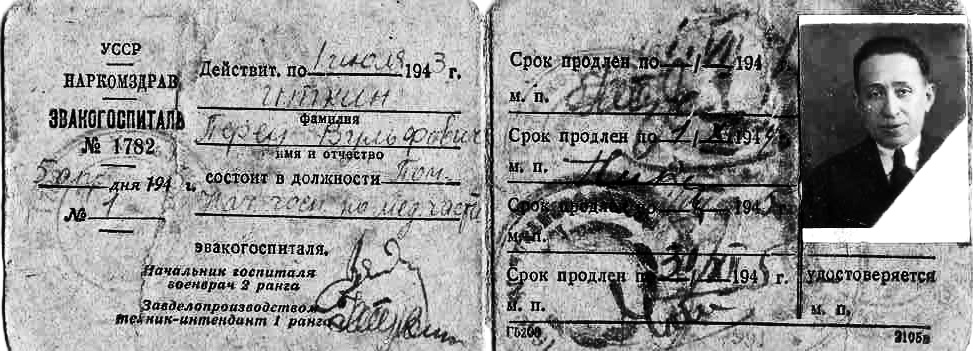 УССР
НАРКОМЗДРАВ
ЭВАКОГОСПИТАЛЬ
№ 1782
5 дня 194 г.
№ 1
Действит. по 1 июля 1943 г.
Иткин
фамилия
Перец Вульфович
имя и отчество
состоит в должности Пом.
Нач. госп. по мед. части
эвакогоспиталя.
Начальник госпиталя
военврач 2 ранга
Завделопроизводством
техник-интендант 1 ранга
Срок продлен по 1/VII 194
м. п.
Срок продлен по 1/ 194
м. п.
Срок продлен по 1945
м. п.
Срок продлен по 31/XII 1945 г.
м. п.
Г5200
удостоверяется
м. п.
2105в